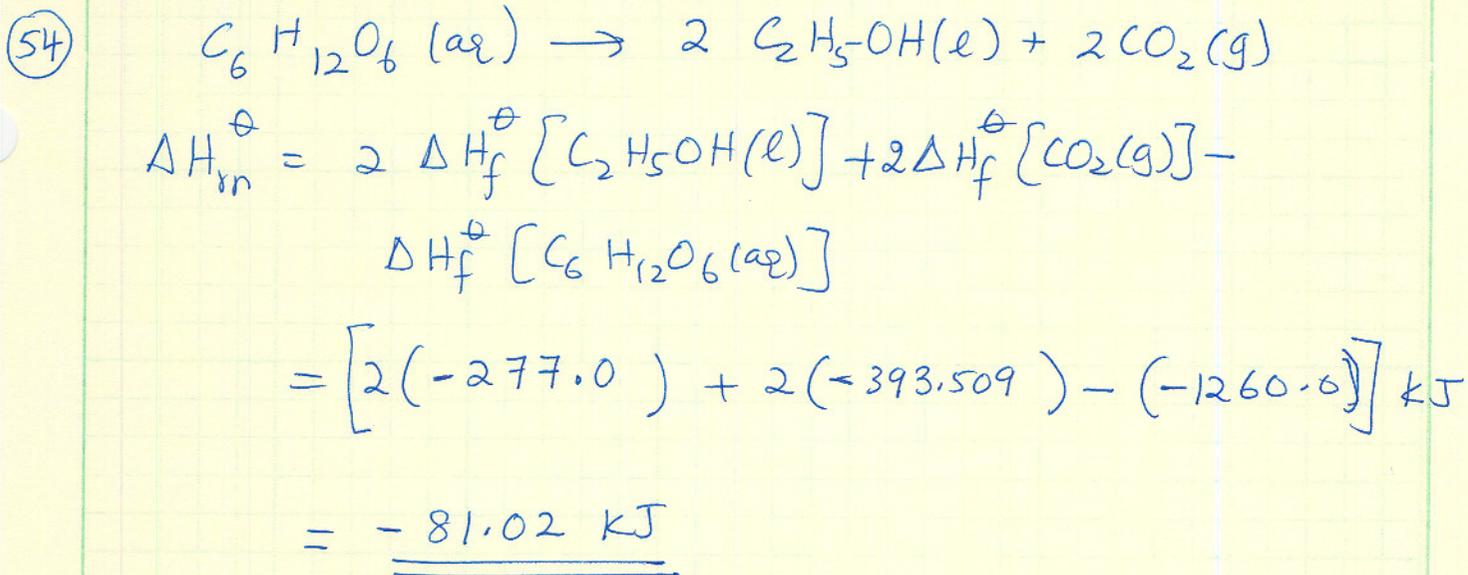 54 C₆H₁₂O₆ (aq) → 2 C₂H₅OH(l) + 2CO₂(g)
ΔH°rxn = 2 ΔHf° [C₂H₅OH(l)] + 2ΔHf° [CO₂(g)] -
ΔHf° [C₆H₁₂O₆(aq)]
= [2(-277.0) + 2(-393.509) - (-1260.0)] kJ
= - 81.02 kJ